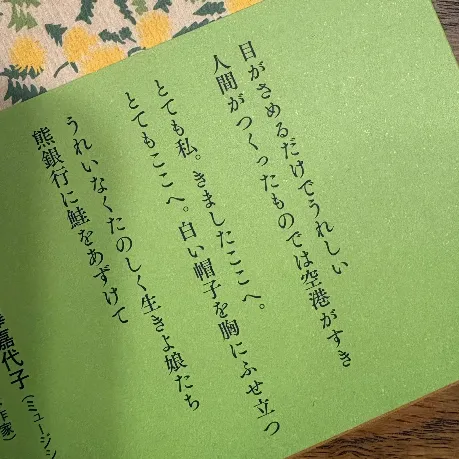 目がさめるだけでうれしい
人間がつくったものでは空港がすき
とても私。きましたここへ。
とてもここへ。白い帽子を胸にふせ立つ
うれいなくたのしく生きよ娘たち
熊銀行に鮭をあずけて
嘉代子(ミュージシ
作家)